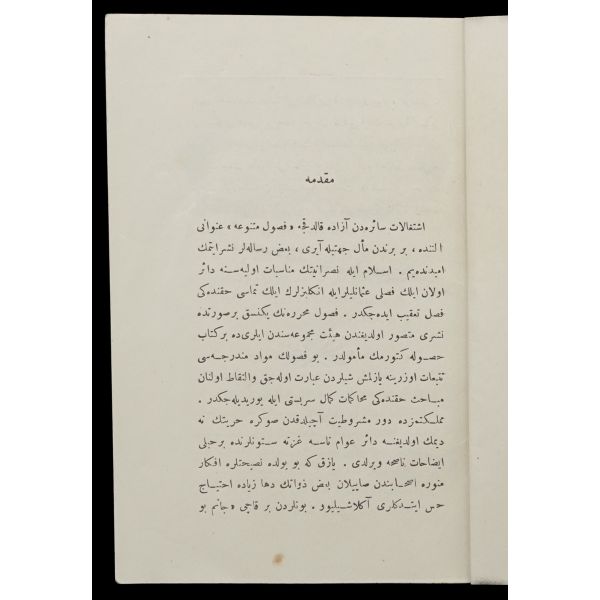 مقدمه
اشتغالات سائره‌دن آزاده قالدقجه «فصول متنوعه» عنوانی
التنده، بر برندن مآل جهتیله آیری، بعض رساله‌لر نشر ایتمك
امیدنده‌یم. اسلام ایله نصرانیتك مناسبات اولیه‌سنه دائر
اولان ایلك فصلی عثمانلیلرایله انكلیزلرك ایلك تماسی حقنده‌كی
فصل تعقیب ایده‌جكدر. فصول محرره‌نك یكنسق برصورتده
نشری متصور اولدیغندن هیئت مجموعه‌سندن ایلریده بركتاب
حصوله كتورمك مأمولدر. بو فصولك مواد مندرجه‌سی
تتبعات اوزرینه یازلمش شیلردن عبارت اوله‌جق والتقاط اولنان
مباحث حقنده‌كی محاكمات كمال سربستی ایله یوریدیله‌جكدر.
مملكتمزده دور مشروطیت آچیلدقدن صوكره حریتك نه
دیمك اولدیغنه دائر عوام ناسه غزته ستونلرنده برحیلی
ایضاحات ناصحه ویرلدی. یازق كه بو یولده نصیحتلره افكار
منوره اصحابندن صاییلان بعض ذواتك دها زیاده احتیاج
حس ایتدكاری آكلاشیلیور. بونلردن بر قاچی «جانم بو